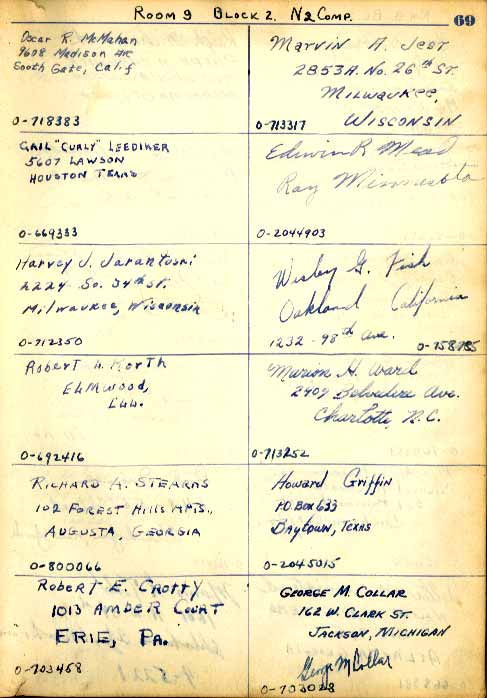 ROOM 9 BLOCK 2. N2 COMP.
69
Oscar R. McMahan
9608 Madison Ave
South Gate, Calif
0-718383
Marvin A. Jest
2853A. No. 26th ST.
MILWAUKEE,
WISCONSIN
0-713317
GAIL "CURLY" LEEDIKER
5607 LAWSON
HOUSTON TEXAS
0-669333
Edwin R Mead
Ray Minnesota
0-2044903
Harvey J. Jarantoski
2224 So. 34th St.
Milwaukee, Wisconsin
0-712350
Wesley G. Fish
Oakland California
1232 - 98th Ave.
0-758785
Robert W. Korth
ELMWOOD,
ILL.
0-692416
Marion H. Ward
2409 Belvedere Ave.
Charlotte, N.C.
0-713252
RICHARD A. STEARNS
102 FOREST HILLS APTS.,
AUGUSTA, GEORGIA
0-800066
Howard Griffin
P.O. Box 633
Baytown, Texas
0-2045015
ROBERT E. CROTTY
1013 AMBER COURT
ERIE, PA.
0-703458
GEORGE M. COLLAR
162 W. CLARK ST.
JACKSON, MICHIGAN
George M Collar
0-703028